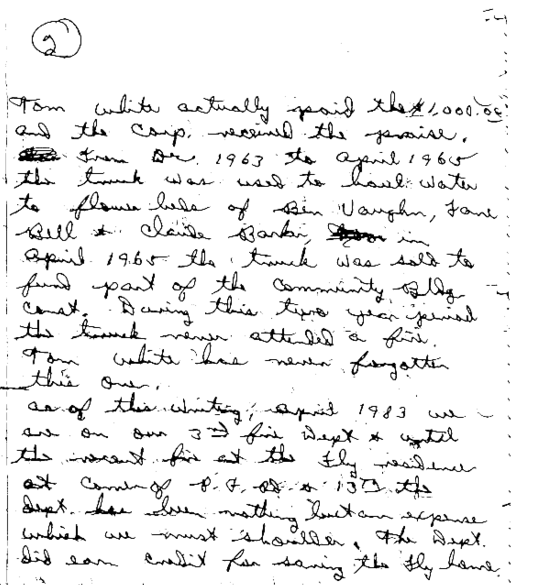 2
Tom White actually paid the $1,000.00
and the Corp. received the praise.
From Dec. 1963 to April 1965
the truck was used to haul water
to flower beds of Ben Vaughn, Jane
Bell & Claude Barker, in
April 1965 the truck was sold to
fund part of the Community Bldg
Const. During this two year period
the truck never attended a fire.
Tom White has never forgotten
this one.
As of this writing, April 1983 we
are on our 3rd fire Dept & until
the recent fire at the Fly residence
at Corner of P.F. Rd & 13th the
Dept. has been nothing but an expense
which we must shoulder. The Dept.
did earn credit for saving the Fly home